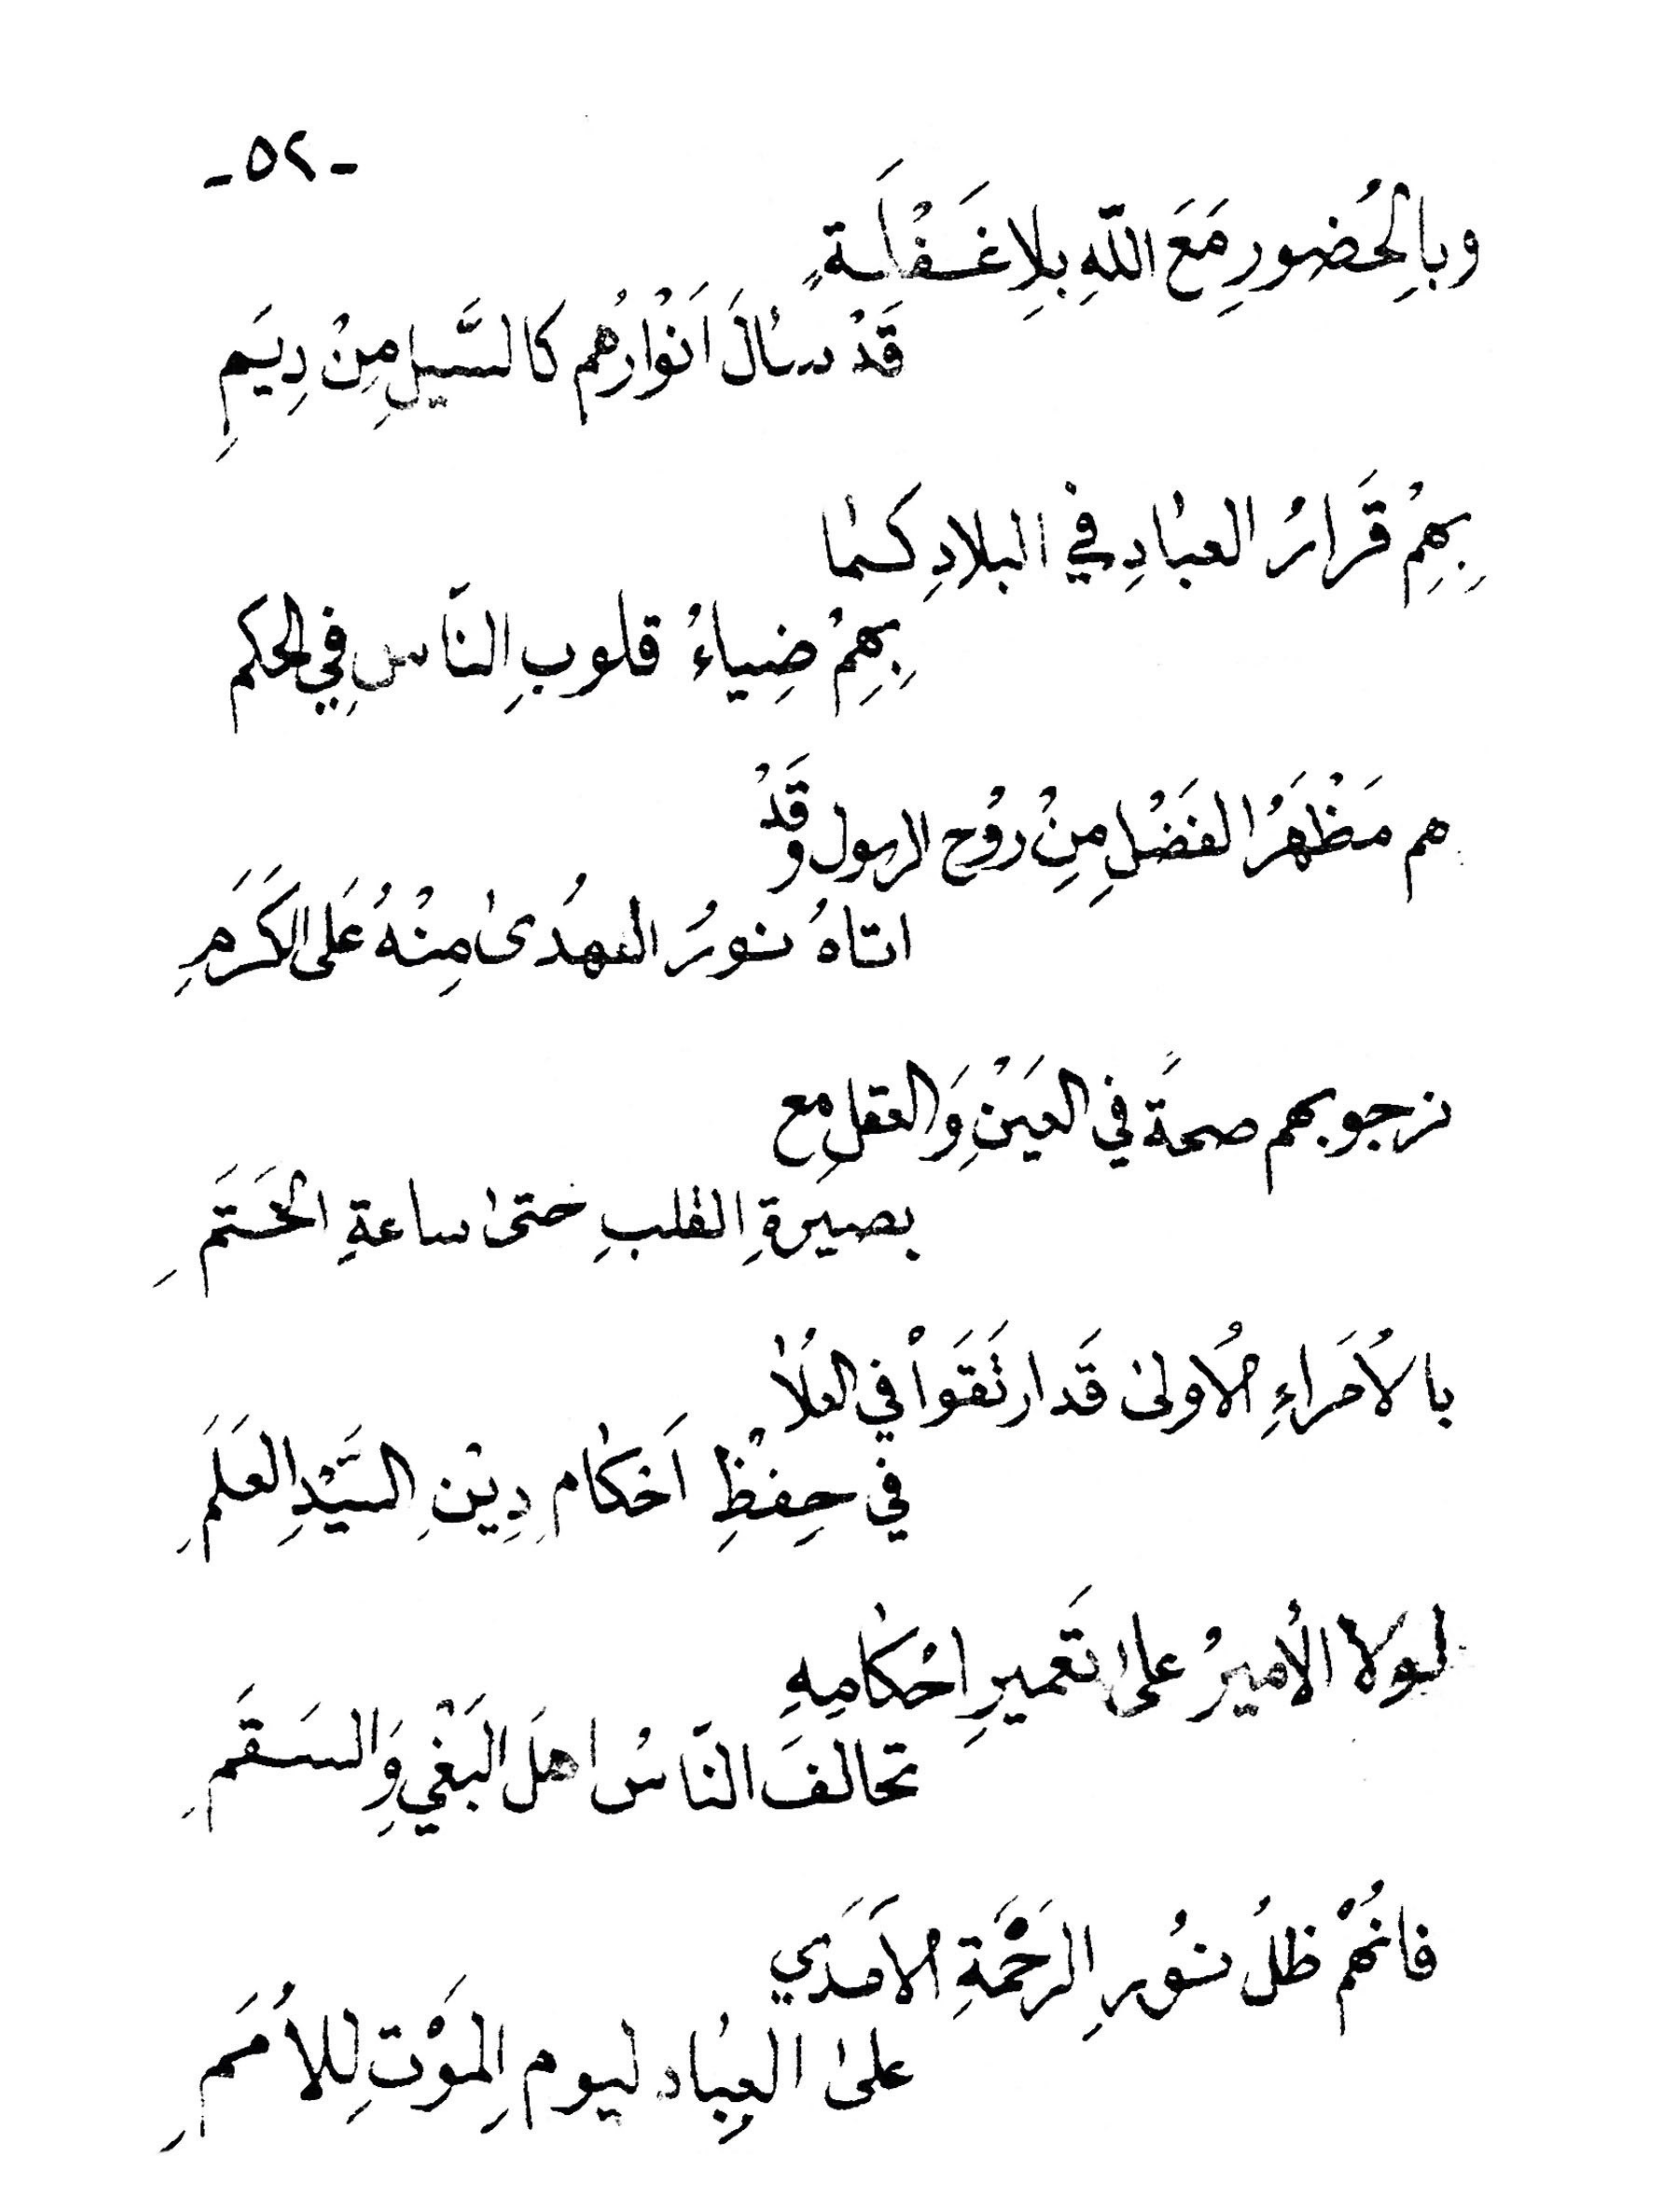 -٥٢-
وبِالحُضورِ مَعَ اللّهِ بِلا غَفْلَةٍ
قَدْ سالَ اَنْوارُهُم كالسَّيلِ مِنْ دِيَمِ
بِهِمْ قَرَارُ العبادِ في البلادِ كما
بِهِمْ ضِياءُ قلوبِ النَاسِ فِي الحكم
هم مَظْهَرُ الفَضْلِ مِنْ رُوُح الرسول وقَدْ
اتاهُ نورُ الهُدىٰ مِنْهُ عَلى الكَرَمِ
نرجو بهم صحةً في العَيْنِ وَالعقلِ مع
بصيرةِ القلبِ حتىٰ ساعةِ الخَتَمِ
بالاُمَراءِ الاُولىٰ قَد ارتَقَواْ في العُلاٰ
في حِفْظِ اَحْكامِ دِيْنِ السَيّدِ العَلَمِ
لولا الاُميرُ على تَعميرِ احْكامِهِ
تحالفَ النّاسُ اهلَ البَغْيِ وَالسَقَمِ
فانهُمْ ظلُ نوُرِ الرَحْمَةِ الاَمَدي
علىٰ العِباد ليومِ المَوْتِ لِلاُمَمِ